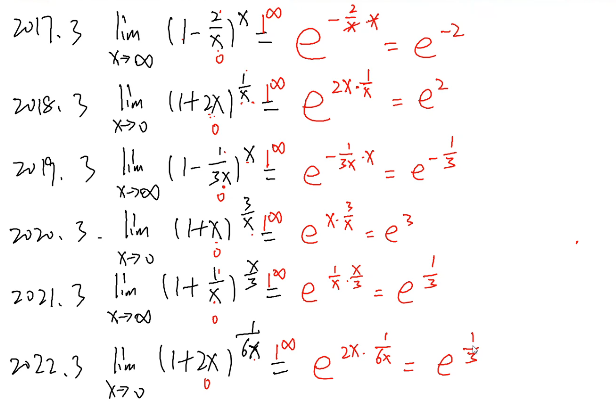 2017.3 lim x→∞ (1-2/x)^x 1^∞= e^(-2/x·x) = e^-2
2018.3 lim x→0 (1+2x)^(1/x) 1^∞= e^(2x·1/x) = e^2
2019.3 lim x→∞ (1-1/3x)^x 1^∞= e^(-1/3x·x) = e^(-1/3)
2020.3. lim x→0 (1+x)^(3/x) 1^∞= e^(x·3/x) = e^3
2021.3 lim x→∞ (1+1/x)^(x/3) 1^∞= e^(1/x·x/3) = e^(1/3)
2022.3 lim x→0 (1+2x)^(1/6x) 1^∞= e^(2x·1/6x) = e^(1/3)